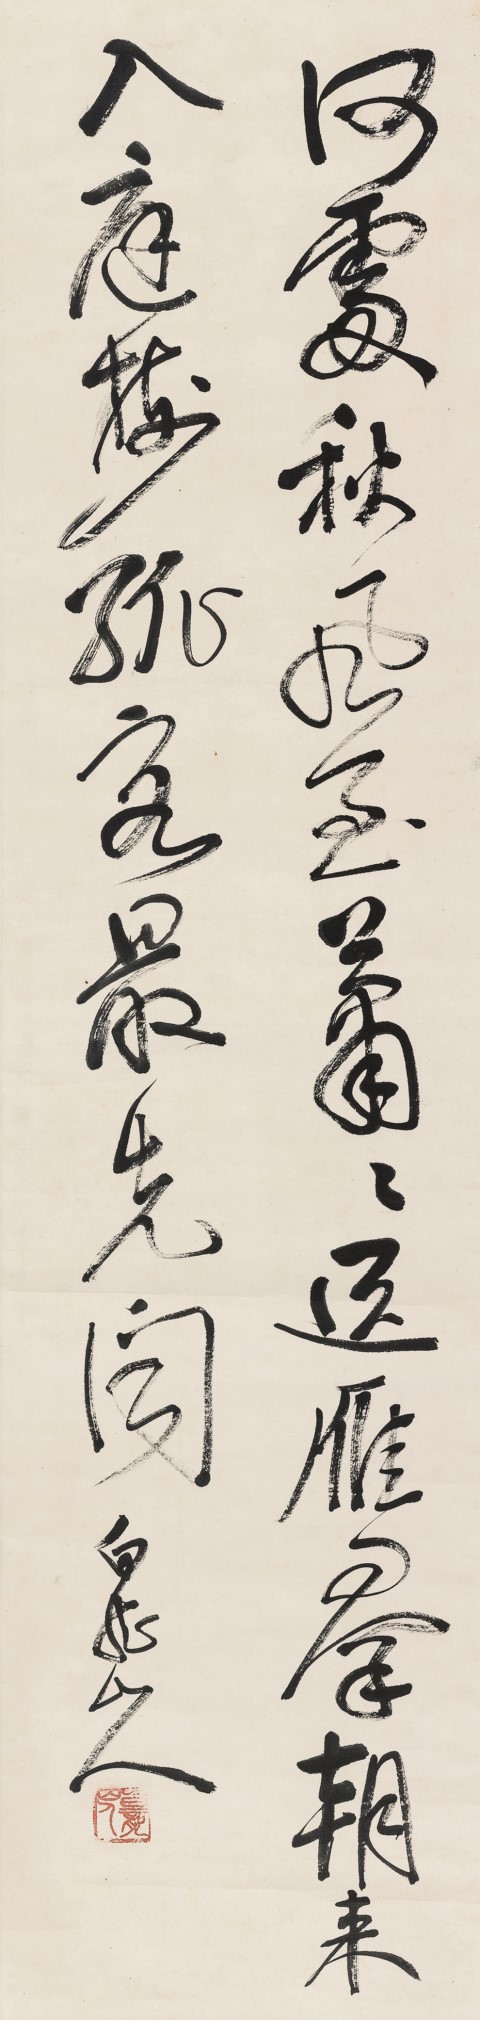 何處秋風至蕭〻送雁羣朝来
入庭樹孤客最先聞 白龍山人